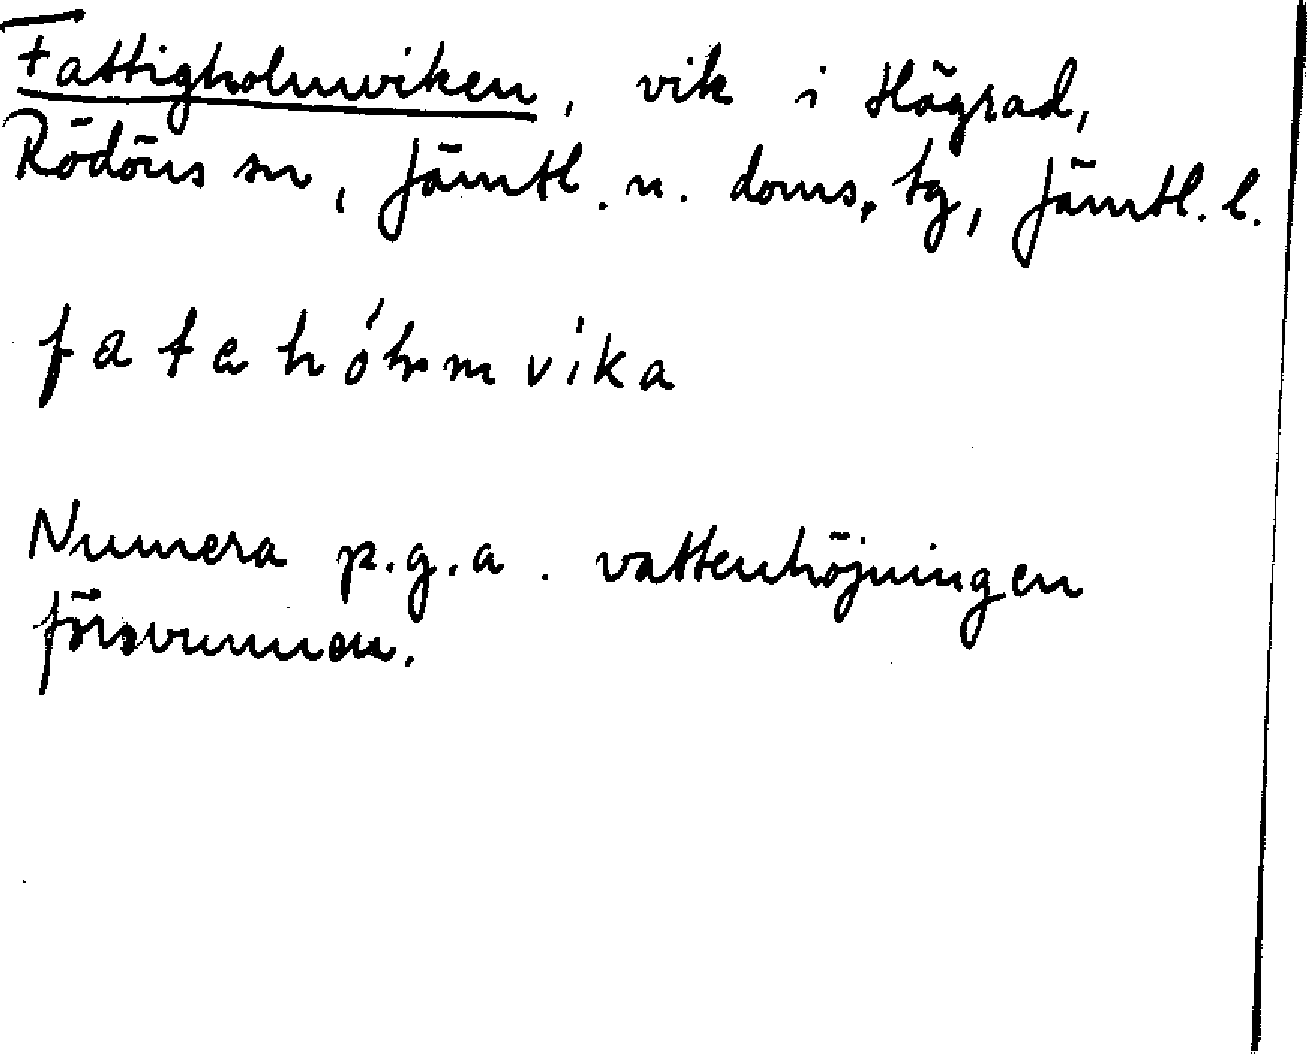 Fattigholmviken, vik i Högrad,
Rödöns sn, Jämtl. n. doms. tg, Jämtl. l.
fatahóhmvika
Numera p.g.a. vattenhöjningen
försvunnen.